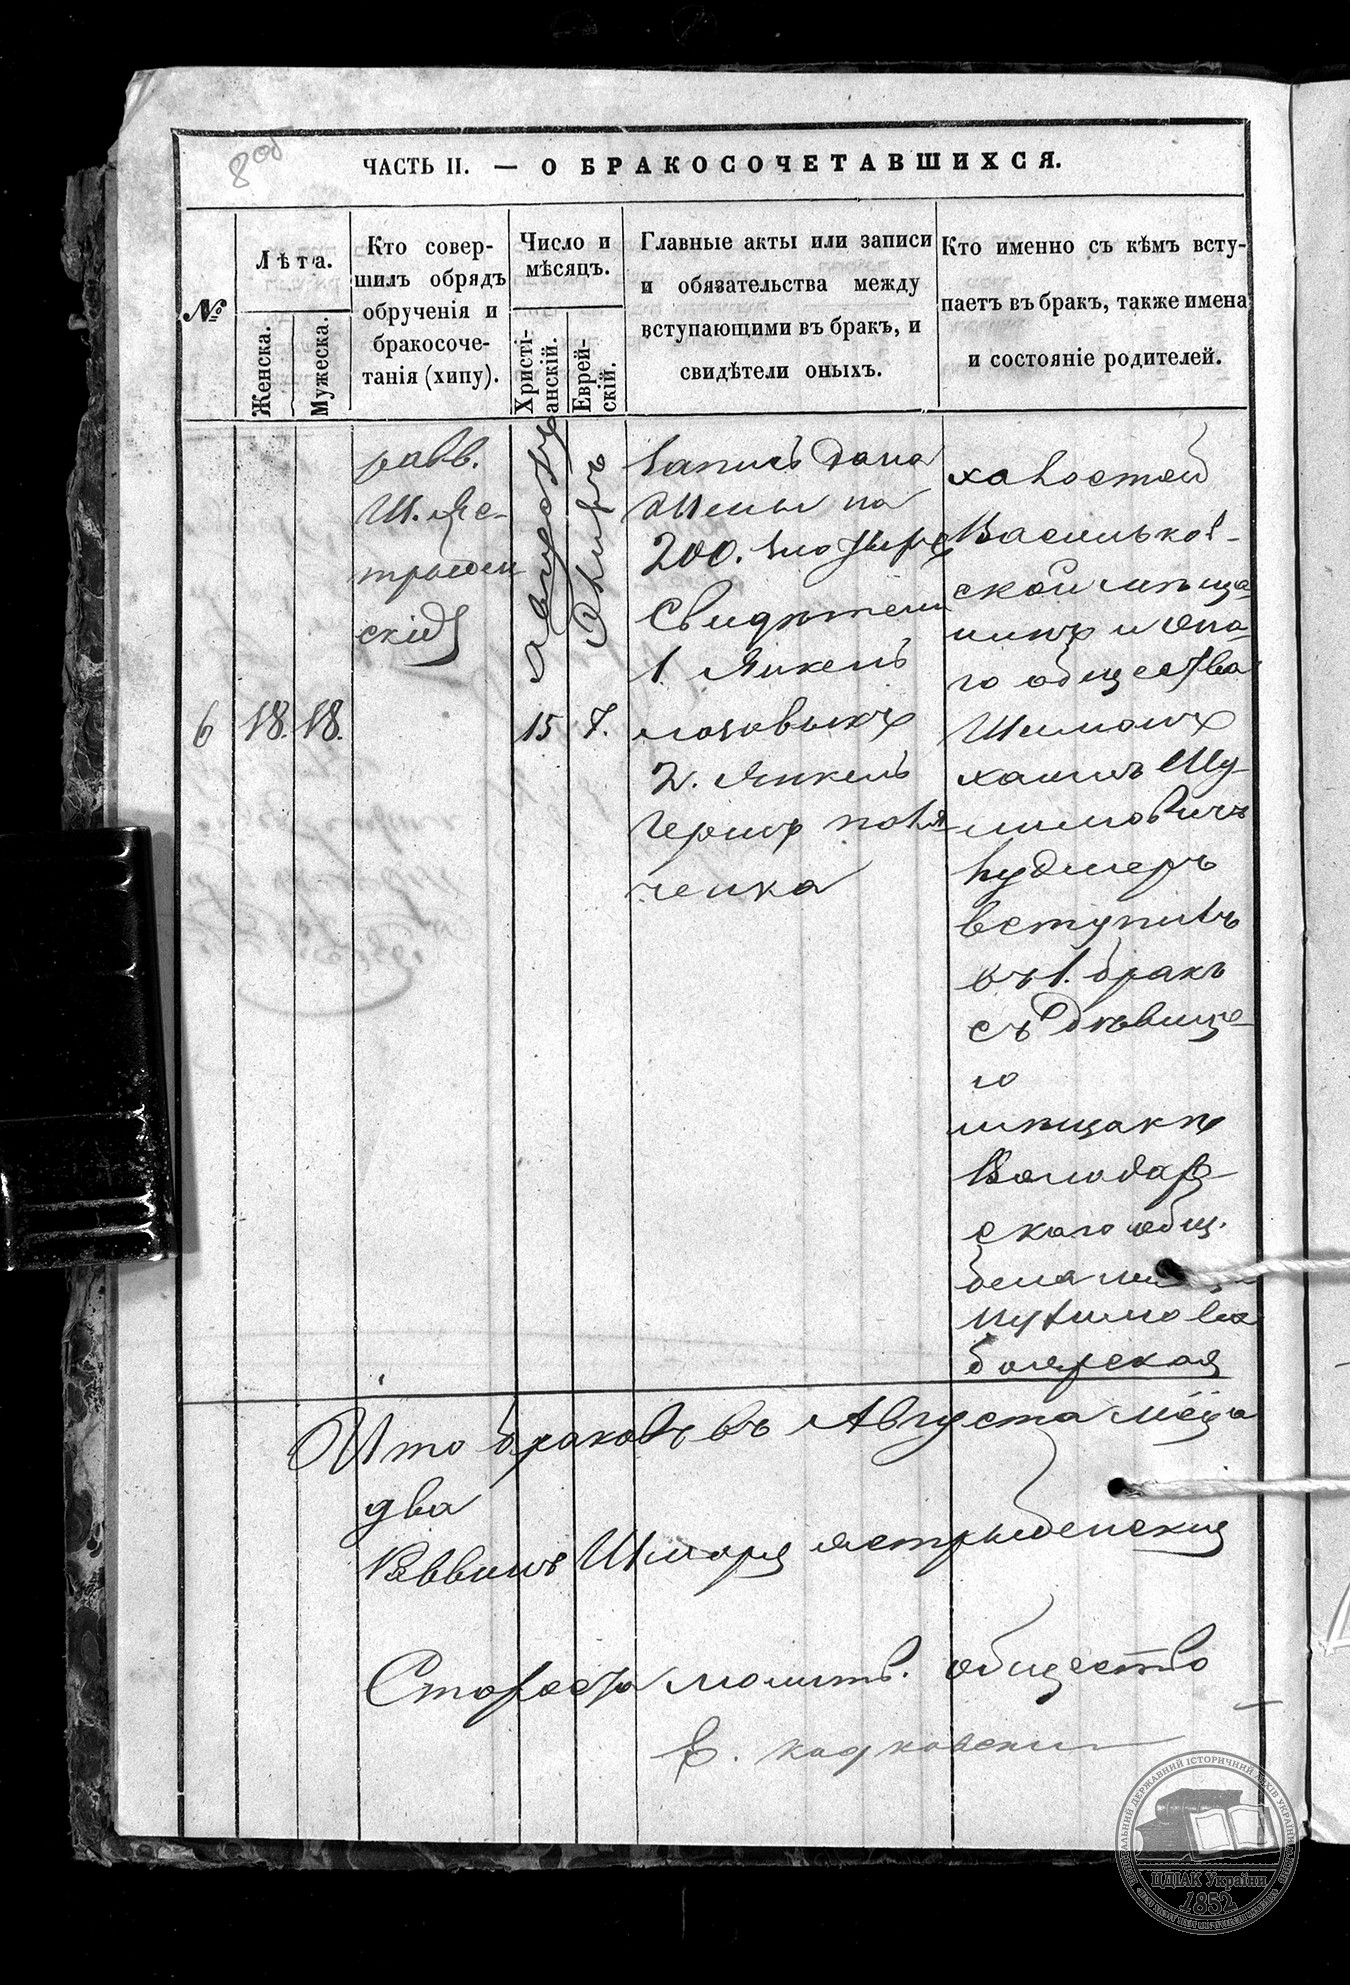 8 об
ЧАСТЬ II. — О БРАКОСОЧЕТАВШИХСЯ.
№
Лѣта.
Женска.
Мужеска.
Кто совер-
шилъ обрядъ
обрученія и
бракосоче-
танія (хипу).
Число и
мѣсяцъ.
Христі-
анскій.
Еврей-
скій.
Главные акты или записи
и обязательства между
вступающими въ бракъ, и
свидѣтели оныхъ.
Кто именно съ кѣмъ всту-
паетъ въ бракъ, также имена
и состояніе родителей.
равв.
Ш. Яс-
трыбен
скій
августъ
6
18.
18.
15
7.
Запись дана
на
200.
Свидѣтели
1. Янкель
2. Янкель
ченка
холостой
Васильков-
ской мѣща-
нинъ и она-
го общества
Шимонъ
хаимъ Шу-
лимовичъ
вступилъ
въ 1. бракъ
съ дѣвице-
ю
мѣщанка
Володар-
ского общ.
боярская
Итого браковъ въ Августа мѣсца
два
Раввинъ Шмаря Ястрыбенский
Староста молитв. общество
Е.
ЦДІАК України
1852